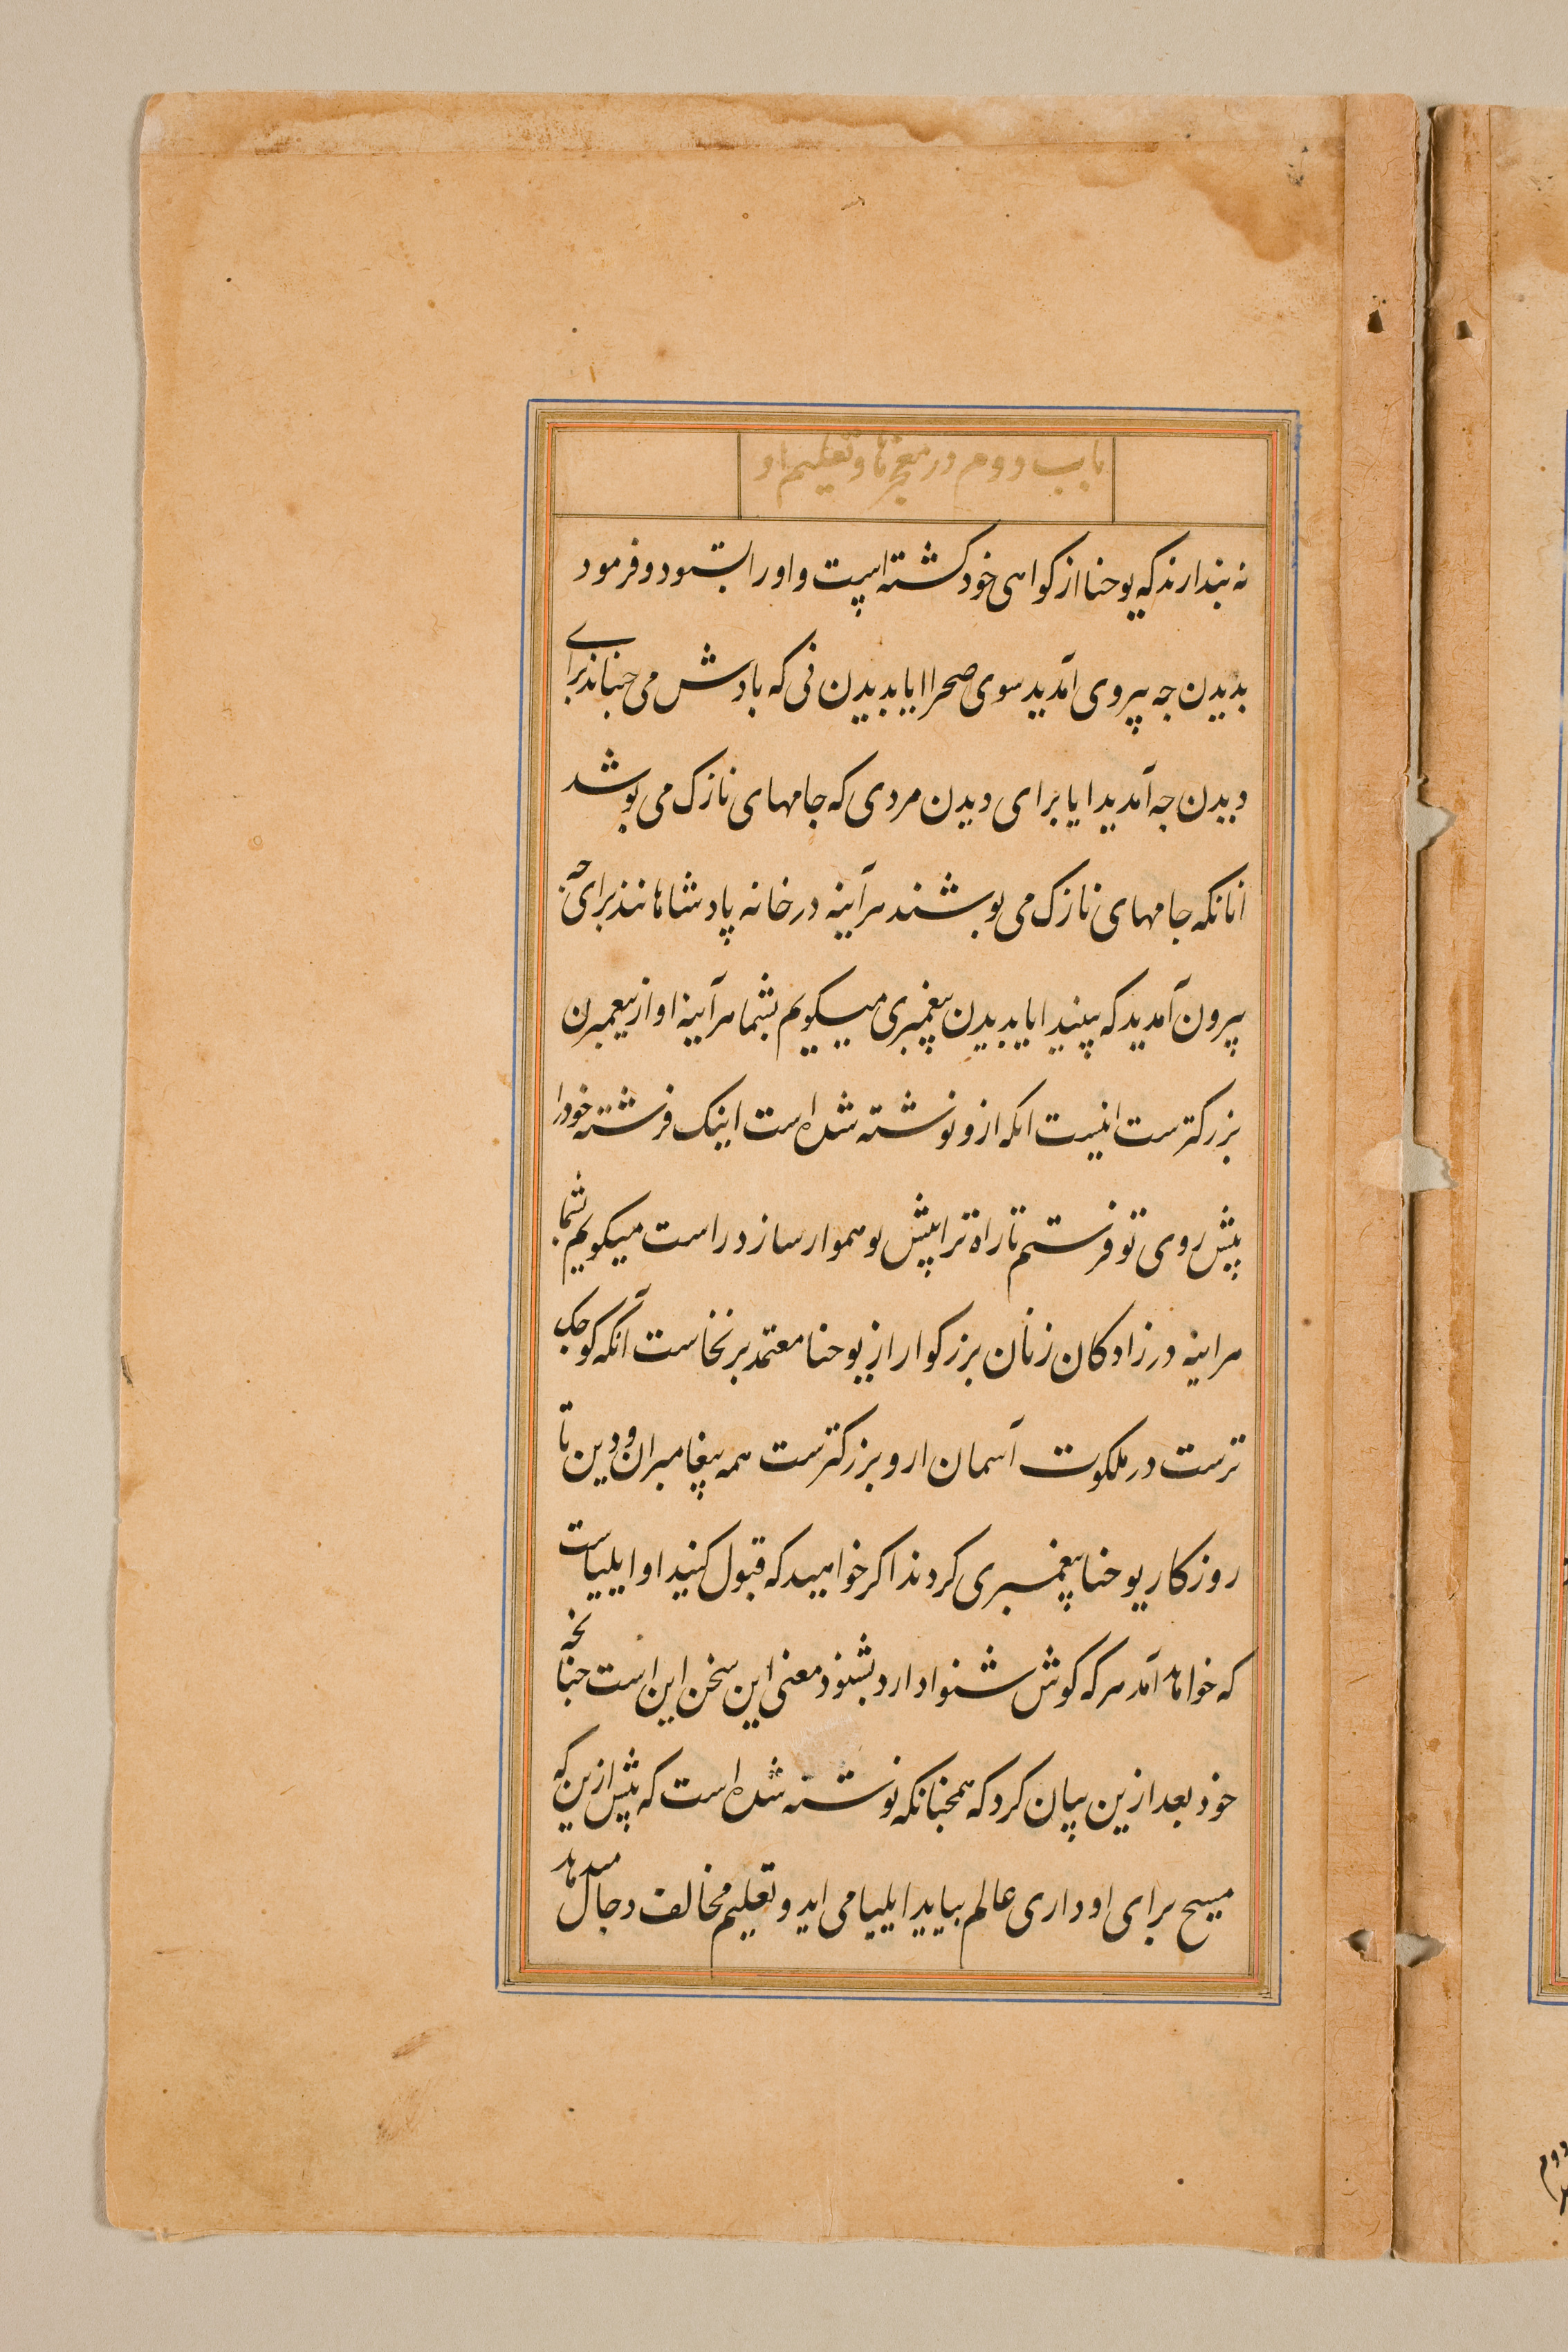 باب دوم در معجزها و تعلیم او
نه بندارند که یوحنا از کواهی خود کشته است و اورا بستود و فرمود
بدیدن جه بیروی آمدید سوی صحرا ایا بدیدن نی که بادش می جنباند برای
دیدن جه آمدید ایا برای دیدن مردی که جامهای نازک می بوشد
انانکه جامهای نازک می بوشند هرآینه در خانه پادشاهانند برای جه
بیرون آمدید که بینید ایا بدیدن پیغمبری میکویم بشما هرآینه او از پیغمبرن
بزرکترست اینست انکه ازو نوشته شده است اینک فرشته خودرا
پیش روی تو فرستم تا راه ترا پیش تو هموار سازد راست میکویم بشما
هراینه در زادکان زنان بزرکوار از یوحنا معتمد برنخاست آنکه کوجک
ترست در ملکوت آسمان ازو بزرکترست همه پیغامبران و دین تا
روزکار یوحنا پیغمبری کردند اکر خواهید که قبول کنید او ایلیاست
که خواهد آمد هر که کوش شنوا دارد بشنود معنی این سخن این است جنانجه
خود بعد ازین بیان کرد که همجنانکه نوشته شده است که پیش ازین که
مسیح برای اوداری عالم بیاید ایلیا می اید و تعلیم مخالف دجال میدهد
دوم